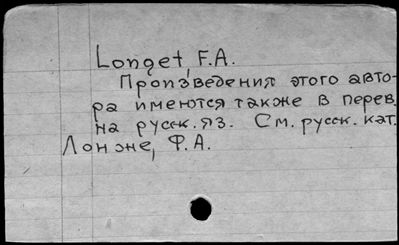 Longet, F.A.
Произведения этого авто-
ра имеются также в перев.
на русск. яз. См. русск. кат.
Лонже, Ф.А.